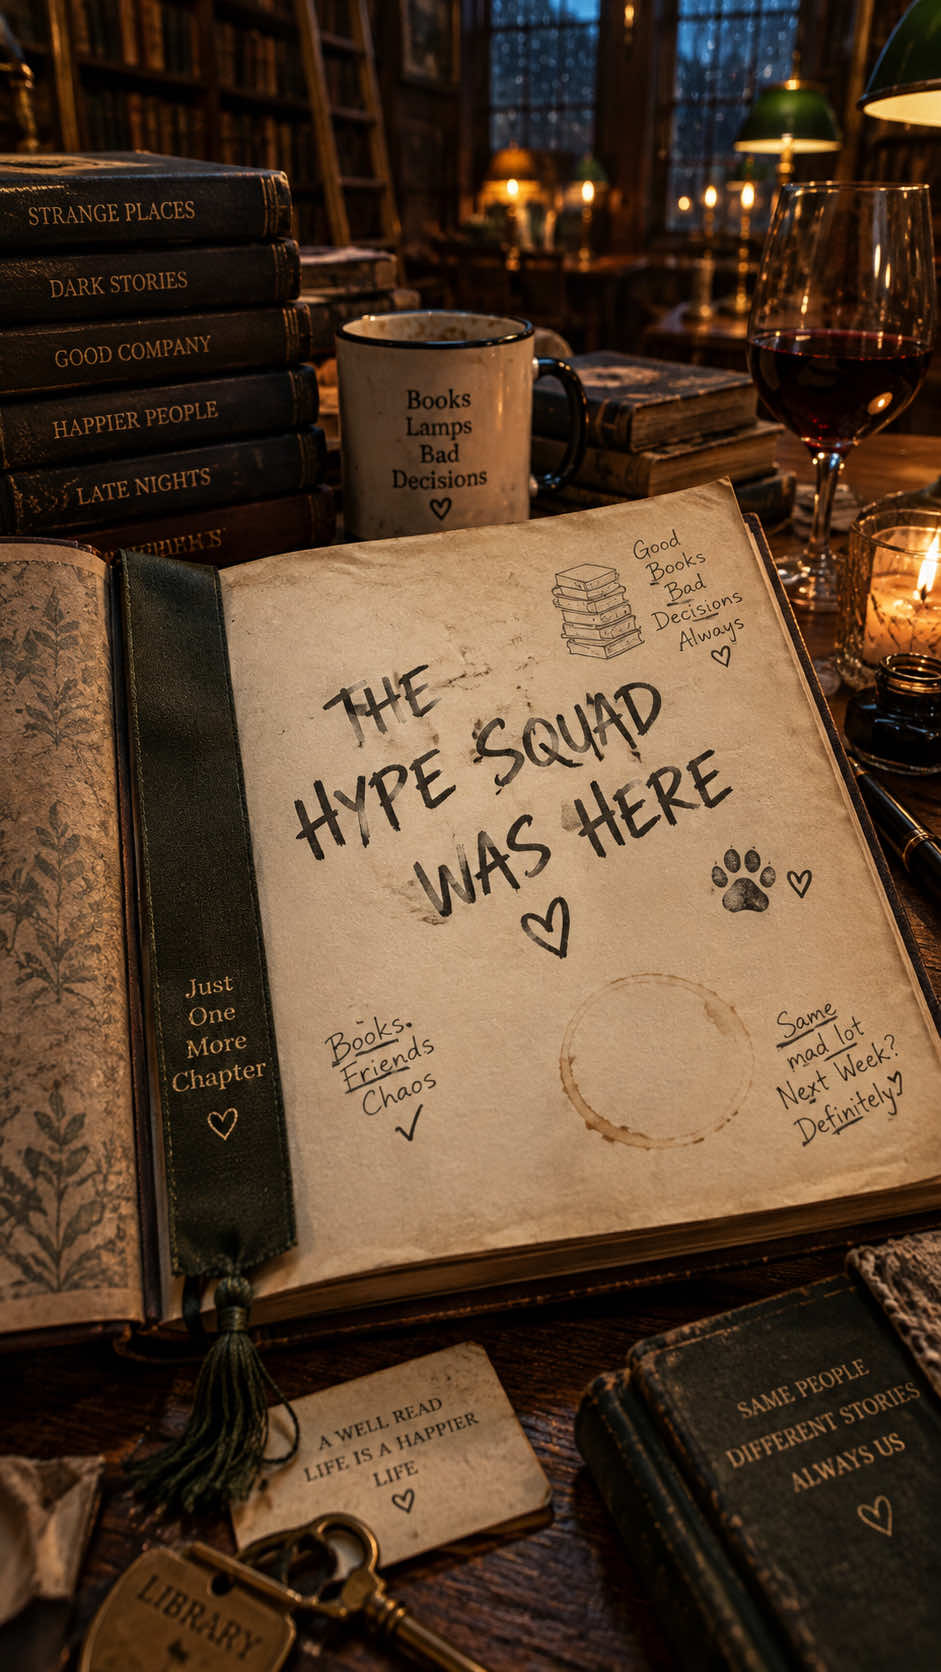 STRANGE PLACES
DARK STORIES
GOOD COMPANY
HAPPIER PEOPLE
LATE NIGHTS
Books
Lamps
Bad
Decisions
Good
Books
Bad
Decisions
Always
THE
HYPE SQUAD
WAS HERE
Just
One
More
Chapter
Books.
Friends
Chaos
Same
mad lot
Next Week?
Definitely
A WELL READ
LIFE IS A HAPPIER
LIFE
SAME PEOPLE
DIFFERENT STORIES
ALWAYS US
LIBRARY